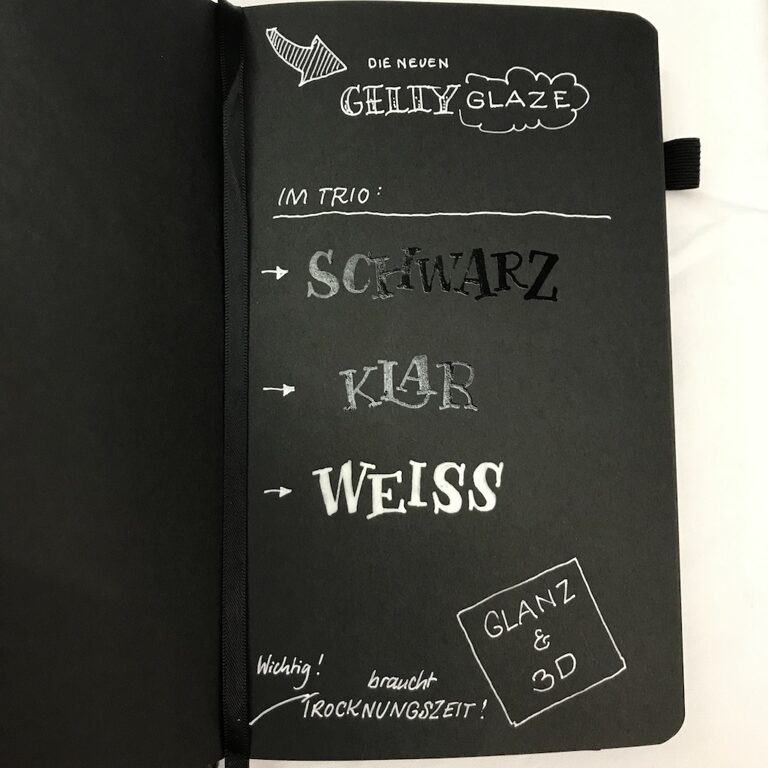 DIE NEUEN
GELLY GLAZE
IM TRIO:
SCHWARZ
KLAR
WEISS
GLANZ
&
3D
Wichtig!
braucht
TROCKNUNGSZEIT!